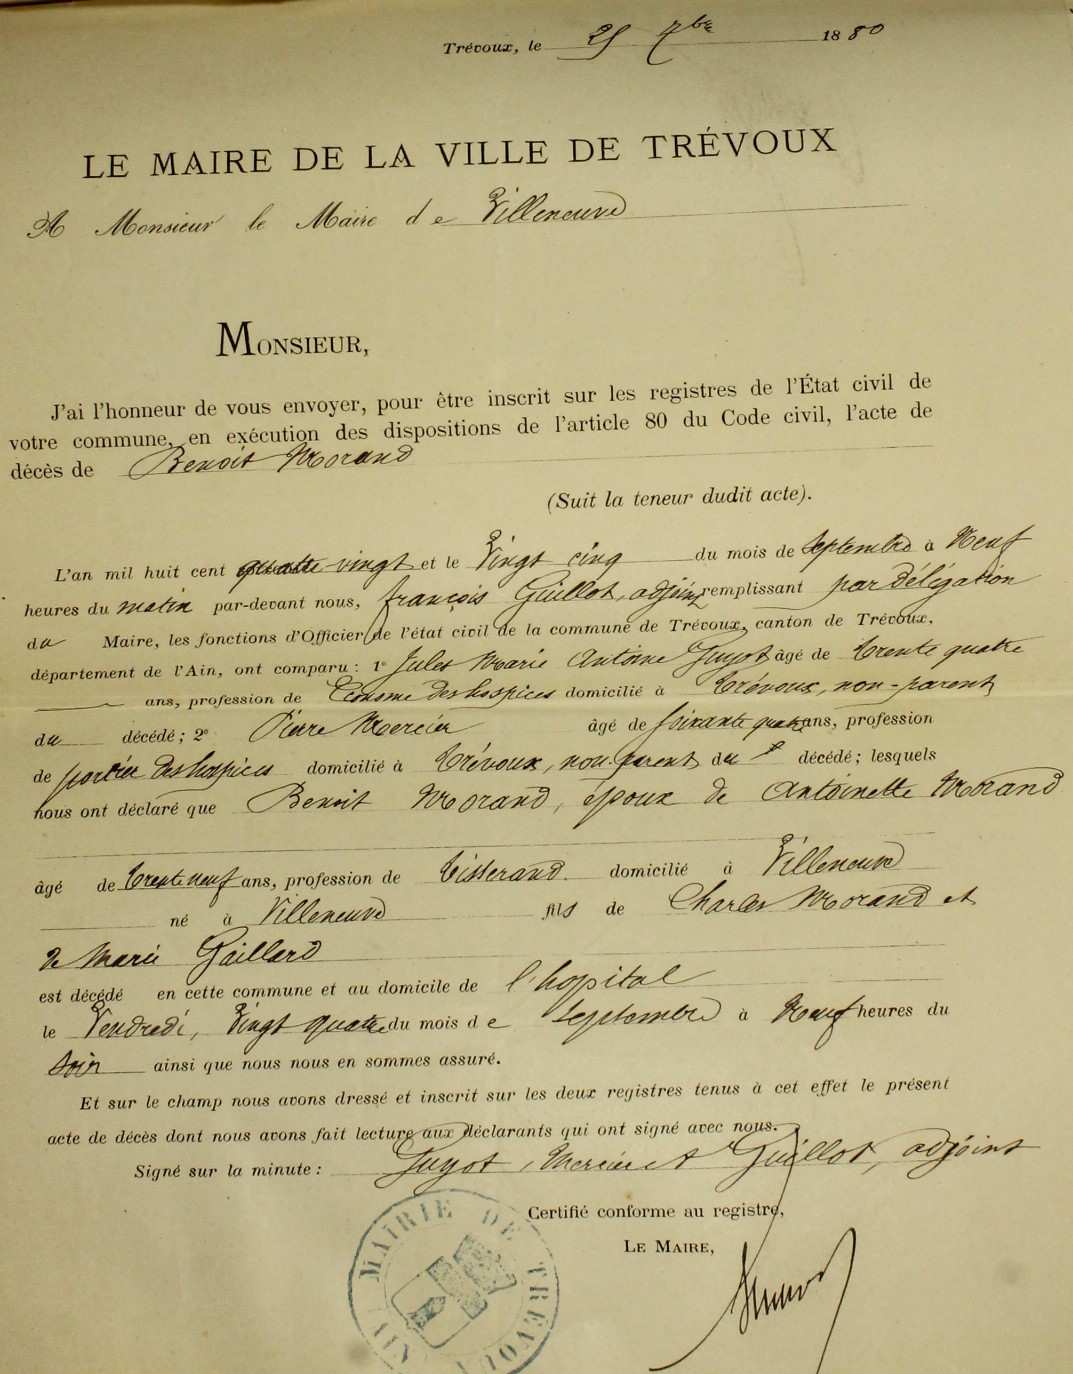 Trévoux, le 25 7bre 1880
LE MAIRE DE LA VILLE DE TRÉVOUX
A Monsieur le Maire de Villeneuve
MONSIEUR,
J'ai l'honneur de vous envoyer, pour être inscrit sur les registres de l'État civil de
votre commune, en exécution des dispositions de l'article 80 du Code civil, l'acte de
décès de Benoit Morand
(Suit la teneur dudit acte).
L'an mil huit cent quatre vingt et le Vingt cinq du mois de septembre à Neuf
heures du matin par-devant nous, françois Guillot, adjoint remplissant par délégation
du Maire, les fonctions d'Officier de l'état civil de la commune de Trévoux, canton de Trévoux,
département de l'Ain, ont comparu : 1° Jules Marie Antoine Guyot âgé de trente quatre
ans, profession de Econome des hospices domicilié à Trévoux, non-parent
du décédé ; 2° Pierre Mercier âgé de soixante quatre ans, profession
de portier des hospices domicilié à Trévoux, non-parent du décédé ; lesquels
nous ont déclaré que Benoit Morand, époux de Antoinette Morand
âgé de trente neuf ans, profession de tisserand. domicilié à Villeneuve
né à Villeneuve fils de Charles Morand et
de Marie Gaillard
est décédé en cette commune et au domicile de l'hopital
le Vendredi, Vingt quatre du mois de septembre à Neuf heures du
soir ainsi que nous nous en sommes assuré.
Et sur le champ nous avons dressé et inscrit sur les deux registres tenus à cet effet le présent
acte de décès dont nous avons fait lecture aux déclarants qui ont signé avec nous.
Signé sur la minute : Guyot, Mercier et Guillot, adjoint
Certifié conforme au registre,
LE MAIRE,
MAIRIE DE TRÉVOUX